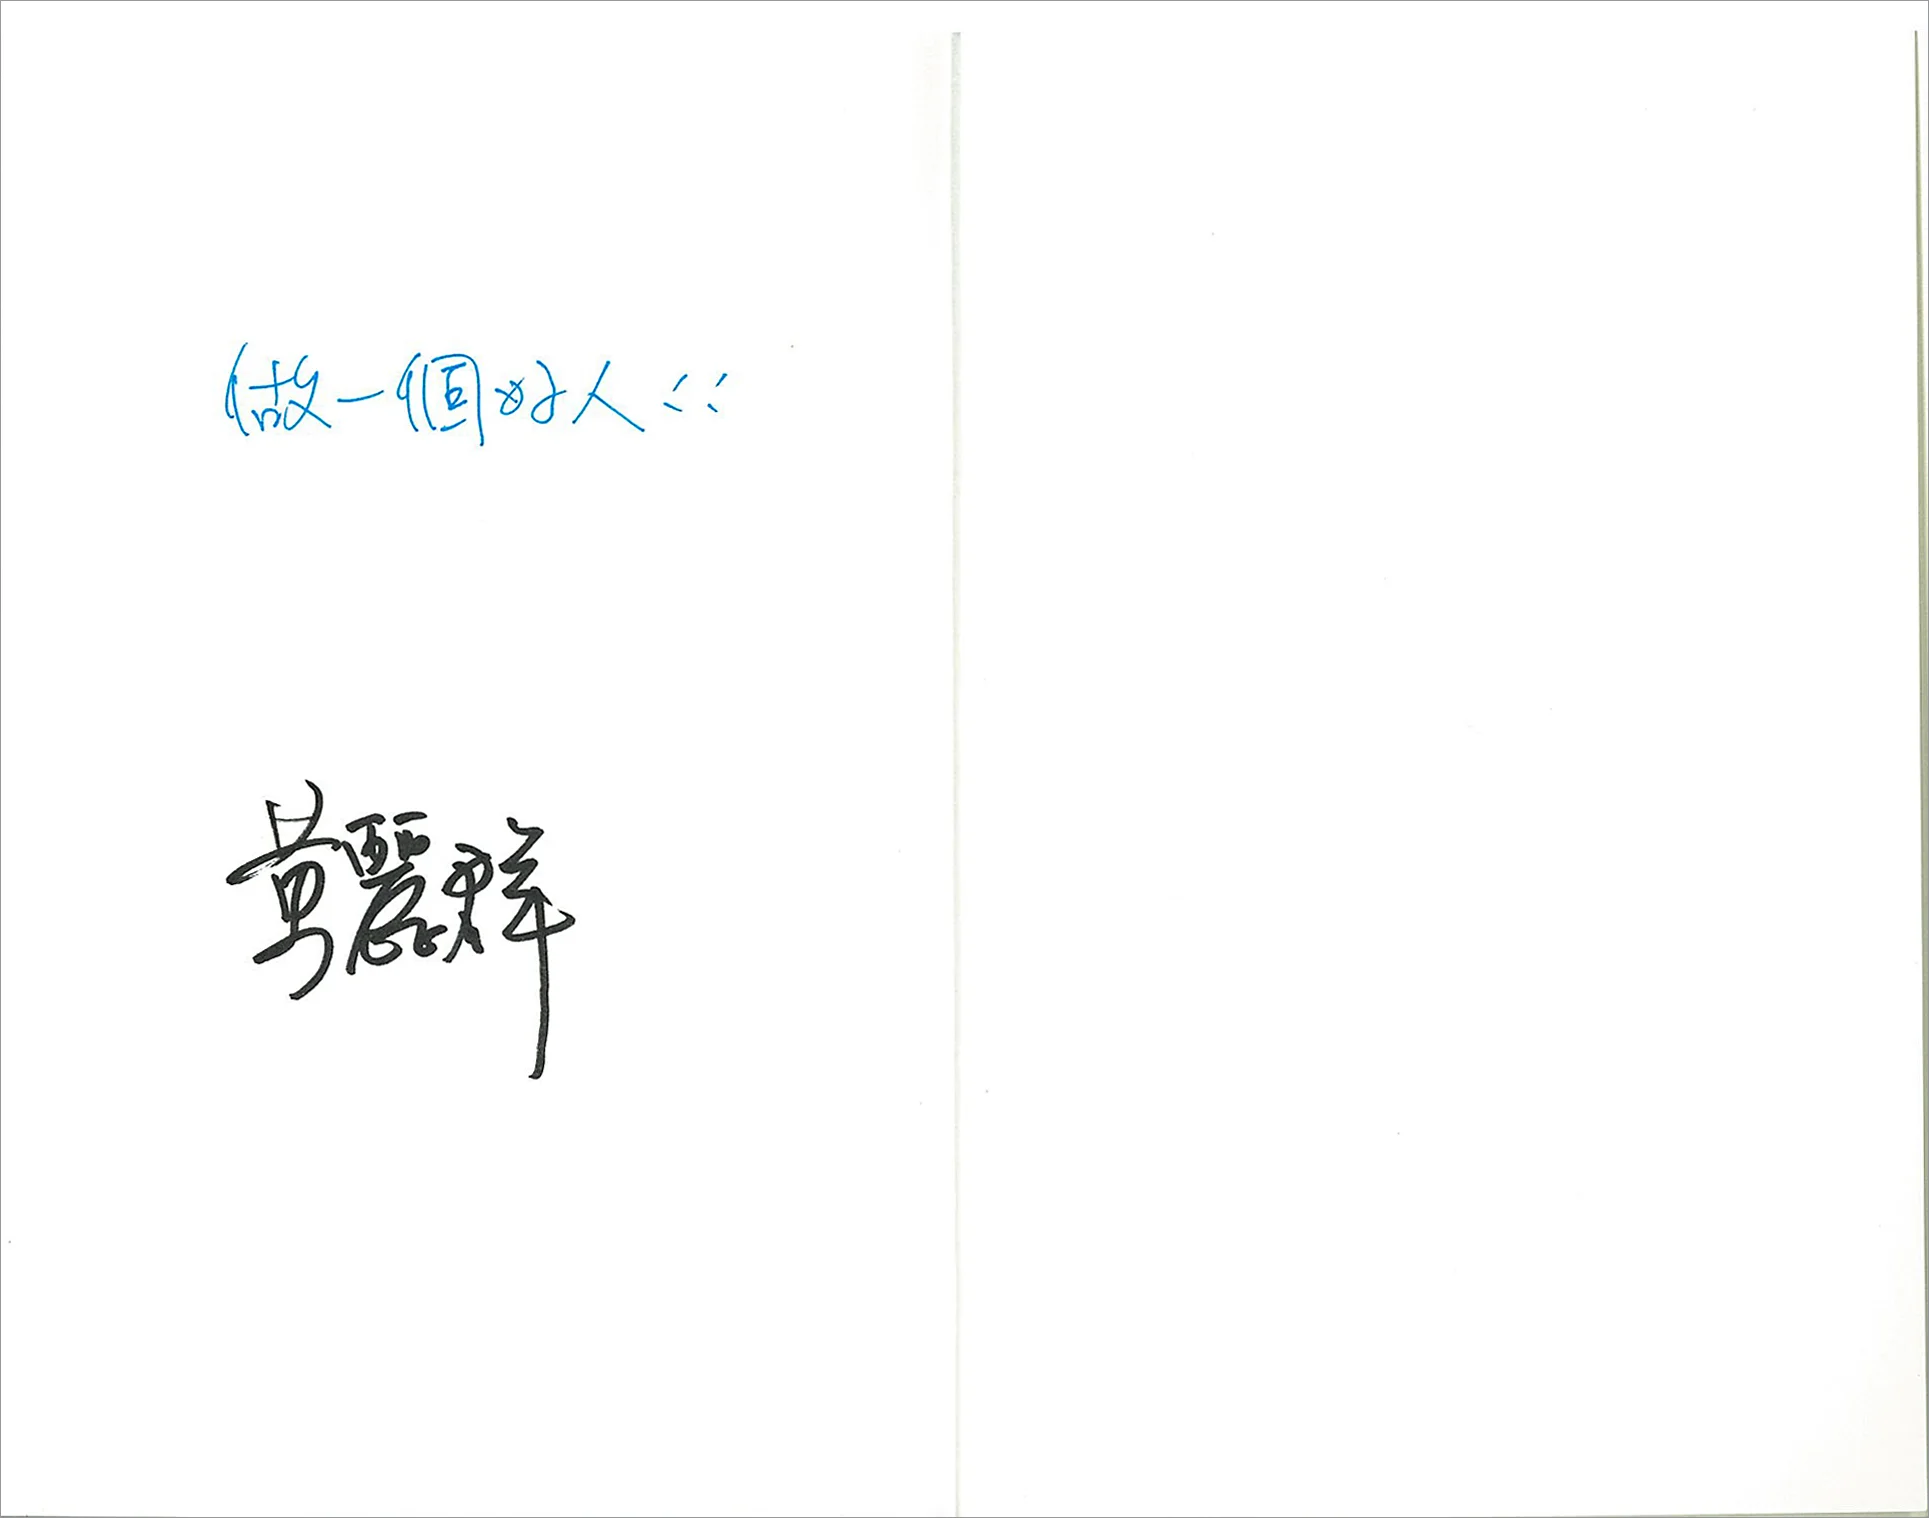 做一個好人：：
黃麗群